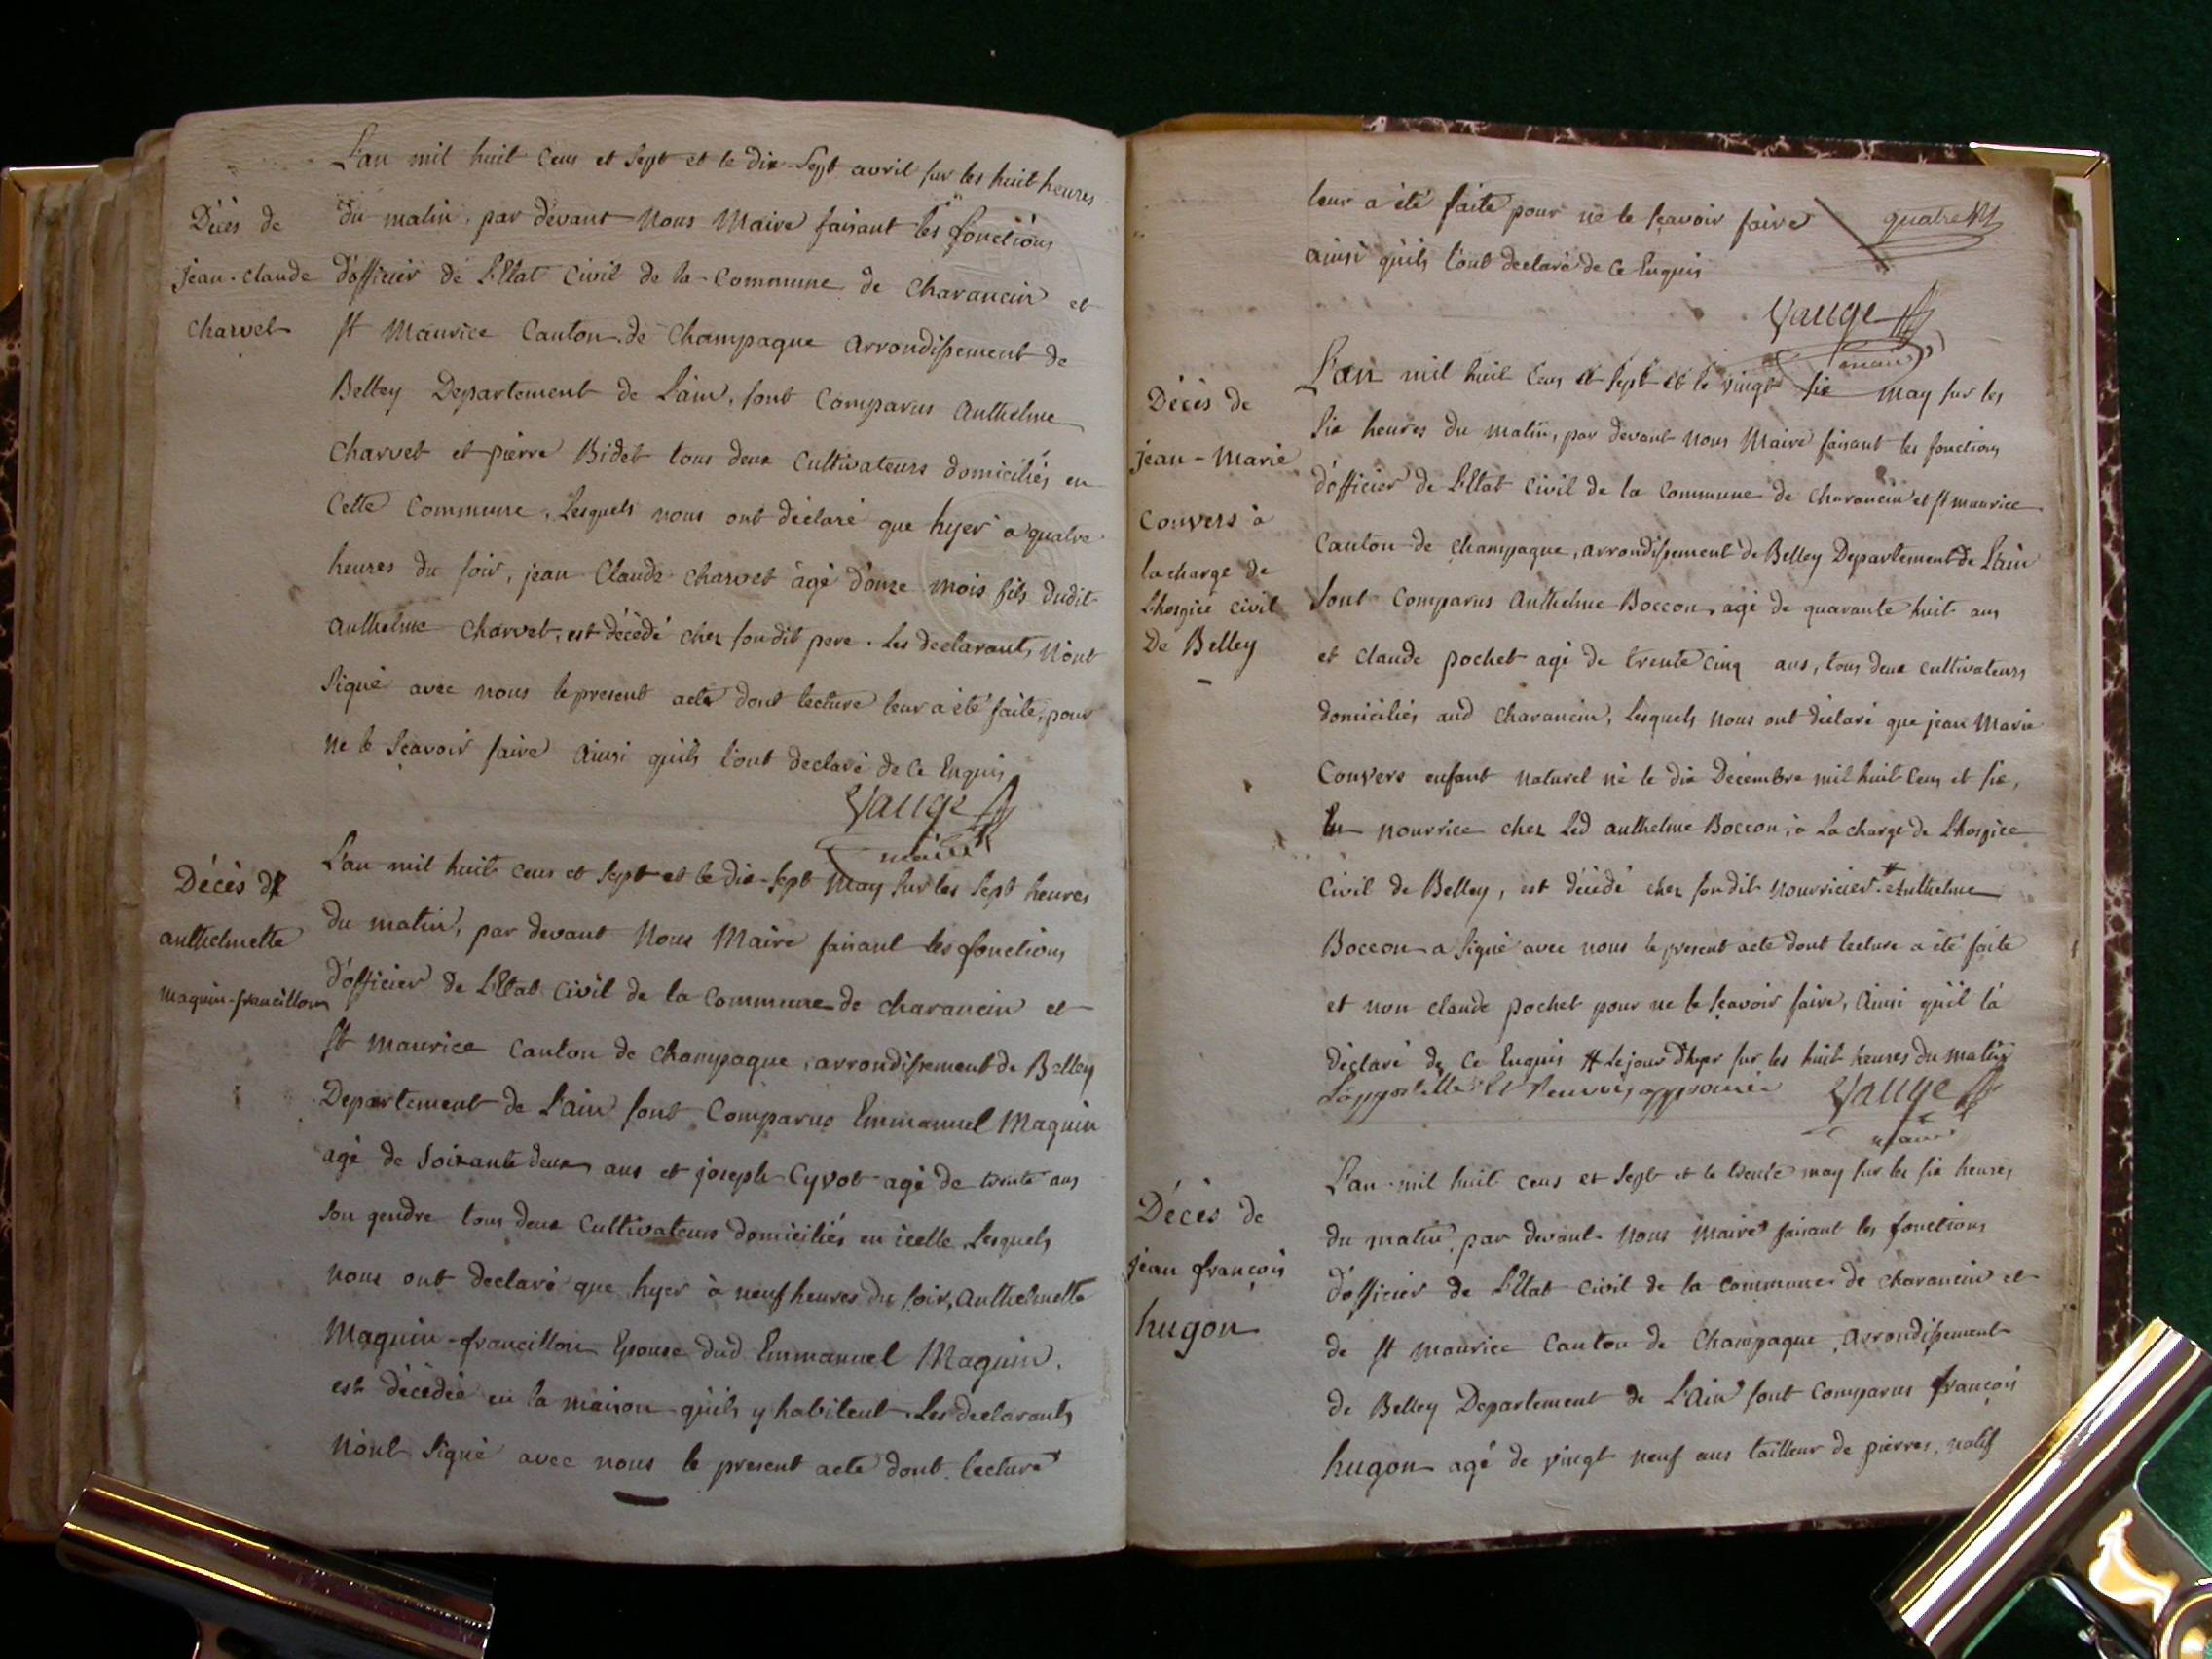 L'an mil huit cens et sept et le dix-sept avril sur les huit heures
Décès de
jean-claude
charvet
du matin, par devant Nous Maire faisant les fonctions
d'officier de L'Etat Civil de la Commune de charancin et
st Maurice Canton de Champagne arrondissement de
Belley Departement de L'ain, sont Comparus Anthelme
Charvet et pierre Bidet tous deux Cultivateurs domiciliés en
Cette Commune, Lesquels nous ont déclaré que hyer a quatre
heures du soir, jean Claude charvet âgé d'onze mois fils dudit
anthelme charvet, est décèdé chez sondit pere. Les declarants n'ont
signé avec nous le present acte dont lecture leur a été faite, pour
ne le sçavoir faire Ainsi qu'ils l'ont declaré de ce Enquis
Vauge
maire
Décès de
anthelmette
maguin-francillon
L'an mil huit cens et sept et le dix-sept may sur les sept heures
du matin, par devant Nous Maire faisant les fonctions
d'officier de L'Etat Civil de la Commune de charancin et
st maurice Canton de Champagne, arrondissement de Belley
Departement de L'ain sont Comparus Emmanuel Maguin
agé de soixante deux ans et joseph Cyvot agé de trente ans
son gendre tous deux Cultivateurs domiciliés en icelle, Lesquels
nous ont declaré que hyer à neuf heures du soir, Anthelmette
Maguin-francillon Epouse dud Emmanuel Maguin,
est décèdée en la maison qu'ils y habitent. Les declarants
n'ont signé avec nous le present acte dont lecture
leur a été faite pour ne le sçavoir faire
ainsi qu'ils l'ont declaré de ce Enquis
Vauge
maire
Décès de
jean-Marie
Convers à
la charge de
Lhospice civil
De Belley
L'an mil huit cens et sept et le vingt six may sur les
six heures du matin, par devant nous Maire faisant les fonctions
d'officier de L'Etat Civil de la Commune de charancin et st maurice
Canton de Champagne, arrondissement de Belley Departement de L'ain
sont Comparus Anthelme Boccon, agé de quarante huit ans
et claude pochet agé de trente cinq ans, tous deux cultivateurs
domiciliés aud charancin, Lesquels nous ont déclaré que jean Marie
Convers enfant naturel né le dix Décembre mil huit cens et six,
En nourrice chez Led anthelme Boccon, à La charge de L'hospice
Civil de Belley, est décèdé chez sondit nourricier # Anthelme
Boccon a signé avec nous le present acte dont lecture a été faite
et non claude pochet pour ne le sçavoir faire, Ainsi qu'il l'a
déclaré de ce Enquis # Le jour d'hyer sur les huit heures du matin
L'appostille Et Renvoy approuvé
Vauge
maire
Décès de
jean françois
hugon
L'an mil huit cens et sept et le trente may sur les six heures
du matin, par devant Nous Maire faisant les fonctions
d'officier de L'Etat Civil de la Commune de charancin et
de st maurice Canton de Champagne, arrondissement
de Belley Departement de L'Ain sont Comparus françois
hugon agé de vingt neuf ans tailleur de pierres, natif